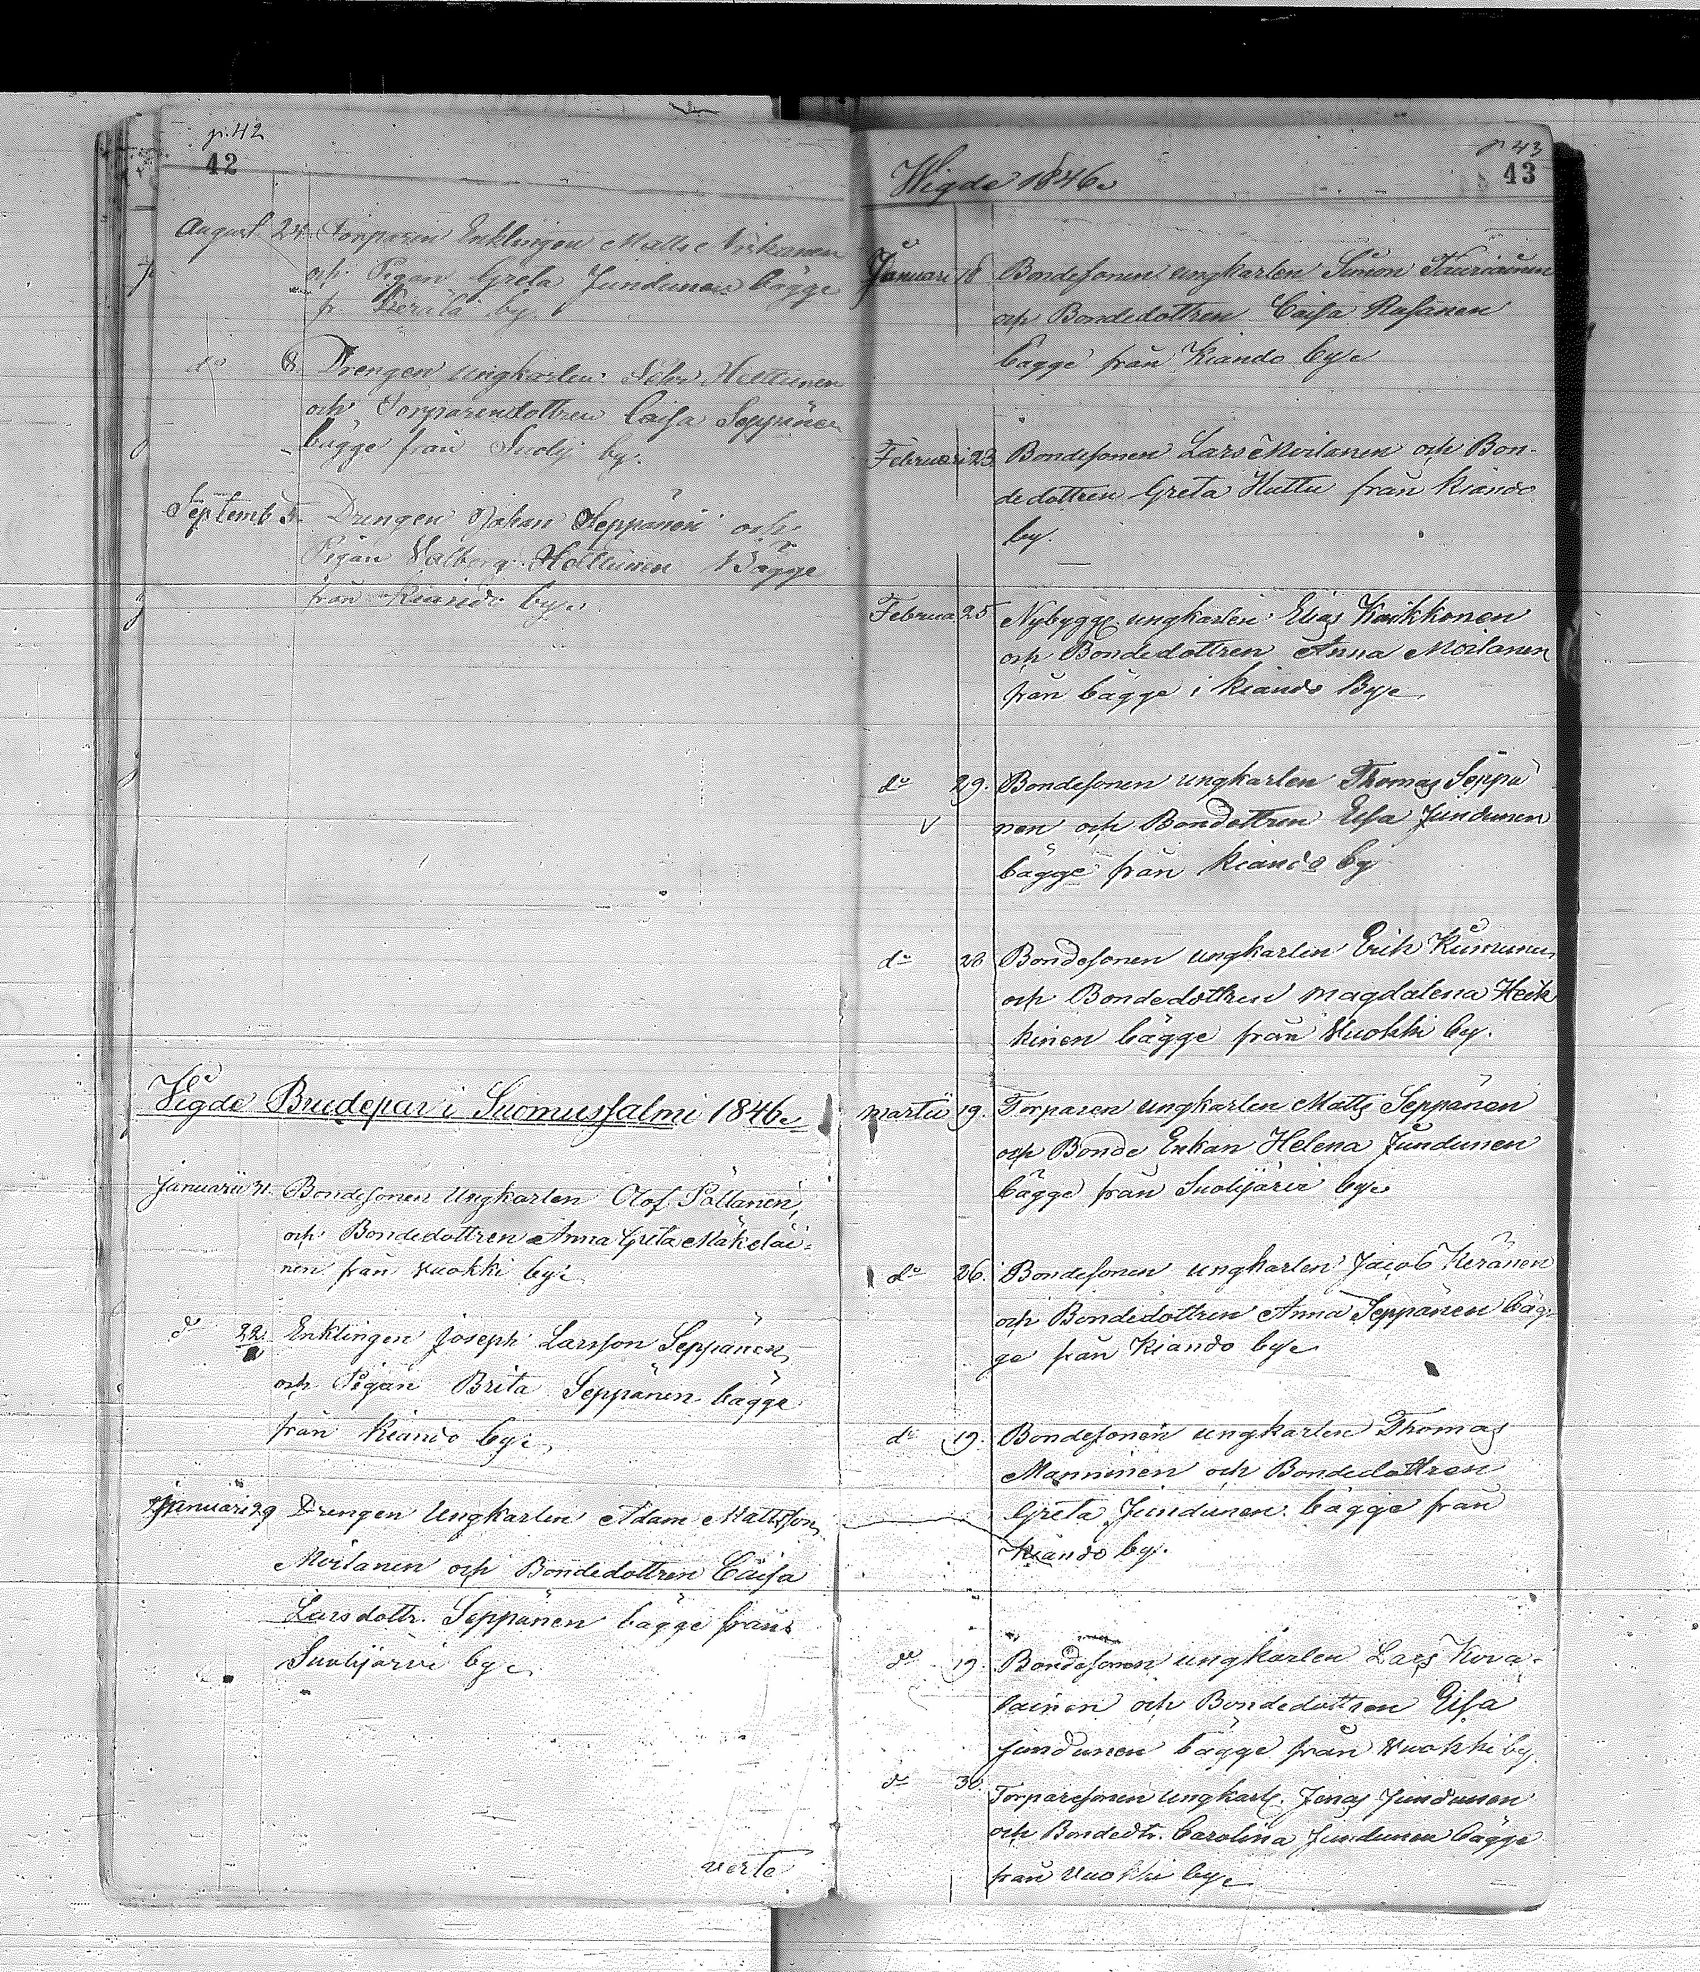 p. 42
42
August 24. Torparen Enklingen Matts
och Pigan Greta Jundunen bägge
fr. by.
do 8. Drengen ungkarlen Heltunen
och Torparedottren Caisa Seppänen
bägge från Suolij by.
Septemb. 5. Drengen Johan Seppänen och
Pigan Valborg Holttunen Bägge
från Kiando by.
Vigde Brudepar i Suomussalmi 1846.
Januarii 31. Bondesonen Ungkarlen Olof Pältänen,
och Bondedottren Anna Greta Mäkeläi=
nen från Vuokki by.
do 22. Enklingen Joseph Larsson Seppänen,
och Pigan Brita Seppänen bägge
från Kiando by.
Januari 29 Drengen Ungkarlen Adam Mattsson
Moilanen och Bondedottren Caisa
Larsdottr. Seppänen bägge från
Suolijärvi by.
verte
p 43
43
Wigde 1846.
Januari 18 Bondesonen ungkarlen Simon Tauriainen
och Bondedottren Caisa Rasanen
bägge från Kiando by.
Februari 23. Bondesonen Lars Moilanen och Bon-
dedottren Greta Huttu från Kiando
by.
Februa 25 Nybygg. ungkarlen Elias Karkkonen
och Bondedottren Anna Moilanen
från bägge i Kiando By.
do 29. Bondesonen ungkarlen Thomas Seppä
nen och Bondottren Elsa Jundunen
bägge från Kiando by
do 28 Bondesonen ungkarlen Erik Kumunen
och Bondedottren Magdalena Heik
kinen bägge från Vuokki by.
Martii 19. Torparen ungkarlen Matts Seppänen
och Bonde Enkan Helena Jundunen
bägge från Suolijärvi by.
do 26. Bondesonen ungkarlen Jacob Keränen
och Bondedottren Anna Seppänen bäg-
ge från Kiando by.
do 19. Bondesonen ungkarlen Thomas
Manninen och Bondedottren
Greta Jundunen bägge från
Kiando by.
do 19. Bondesonen ungkarlen Lars Kova-
lainen och Bondedottren Elsa
Jundunen bägge från Vuokki by.
do 30. Torparesonen ungkarl. Jonas Jundunen
och Bondedtr. Carolina Jundunen bägge
från Vuokki by.